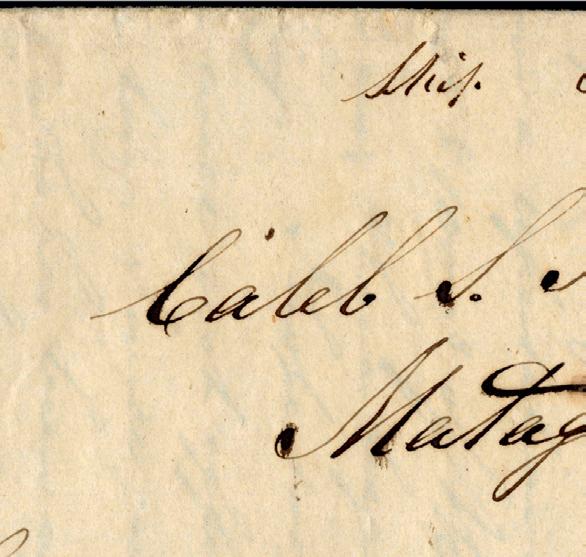 Ship
Caleb S.
Matag